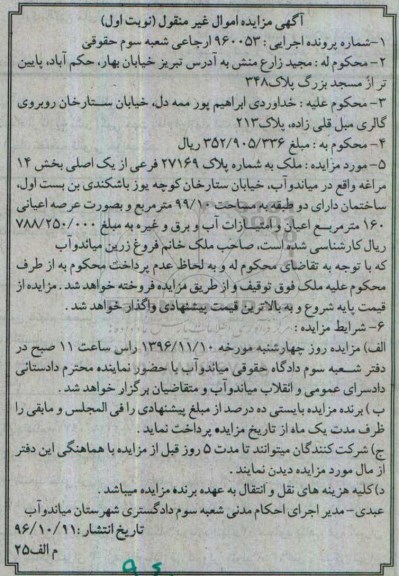 آگهی مزایده اموال غیر منقول (نوبت اول)
۱-شماره پرونده اجرایی : ۹۶۰۰۵۳ ارجاعی شعبه سوم حقوقی
۲- محکوم له : مجید زارع منش به آدرس تبریز خیابان بهار، حکم آباد، پایین
تر از مسجد بزرگ پلاک۳۴۸
۳- محکوم علیه : خداوردی ابراهیم پور ممه دل، خیابان ستارخان روبروی
گالری مبل قلی زاده، پلاک۲۱۳
۴- محکوم به : مبلغ ۳۵۲/۹۰۵/۳۳۶ ریال
۵- مورد مزایده : ملک به شماره پلاک ۲۷۱۶۹ فرعی از یک اصلی بخش ۱۴
مراغه واقع در میاندوآب، خیابان ستارخان کوچه یوز باشکندی بن بست اول،
ساختمان دارای دو طبقه به مساحت ۹۹/۱۰ مترمربع و بصورت عرصه اعیانی
۱۶۰ مترمربع اعیان و امتیازات آب و برق و غیره به مبلغ ۷۸۸/۲۵۰/۰۰۰
ریال کارشناسی شده است، صاحب ملک خانم فروغ زرین میاندوآب
که با توجه به تقاضای محکوم له و به لحاظ عدم پرداخت محکوم به از طرف
محکوم علیه ملک فوق توقیف و از طریق مزایده فروخته خواهد شد . مزایده از
قیمت پایه شروع و به بالاترین قیمت پیشنهادی واگذار خواهد شد .
۶- شرایط مزایده :
الف) مزایده روز چهارشنبه مورخه ۱۳۹۶/۱۱/۱۰ راس ساعت ۱۱ صبح در
دفتر شعبه سوم دادگاه حقوقی میاندوآب با حضور نماینده محترم دادستانی
دادسرای عمومی و انقلاب میاندوآب و متقاضیان برگزار خواهد شد .
ب ) برنده مزایده بایستی ده درصد از مبلغ پیشنهادی را فی المجلس و مابقی را
ظرف مدت یک ماه از تاریخ مزایده پرداخت نماید .
ج) شرکت کنندگان میتوانند تا مدت ۵ روز قبل از مزایده با هماهنگی این دفتر
از مال مورد مزایده دیدن نمایند .
د)کلیه هزینه های نقل و انتقال به عهده برنده مزایده میباشد .
عبدی - مدیر اجرای احکام مدنی شعبه سوم دادگستری شهرستان میاندوآب
تاریخ انتشار : ۹۶/۱۰/۱۱
م الف۲۵